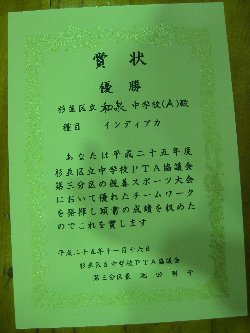 賞状
優勝
杉並区立 和泉 中学校(A)殿
種目 インディアカ
あなたは平成二十五年度
杉並区立中学校PTA協議会
第三分区の親善スポーツ大会
において優れたチームワーク
を発揮し頭書の成績を収めた
のでこれを賞します
平成二十五年十一月十六日
杉並区立中学校PTA協議会
第三分区長 池田